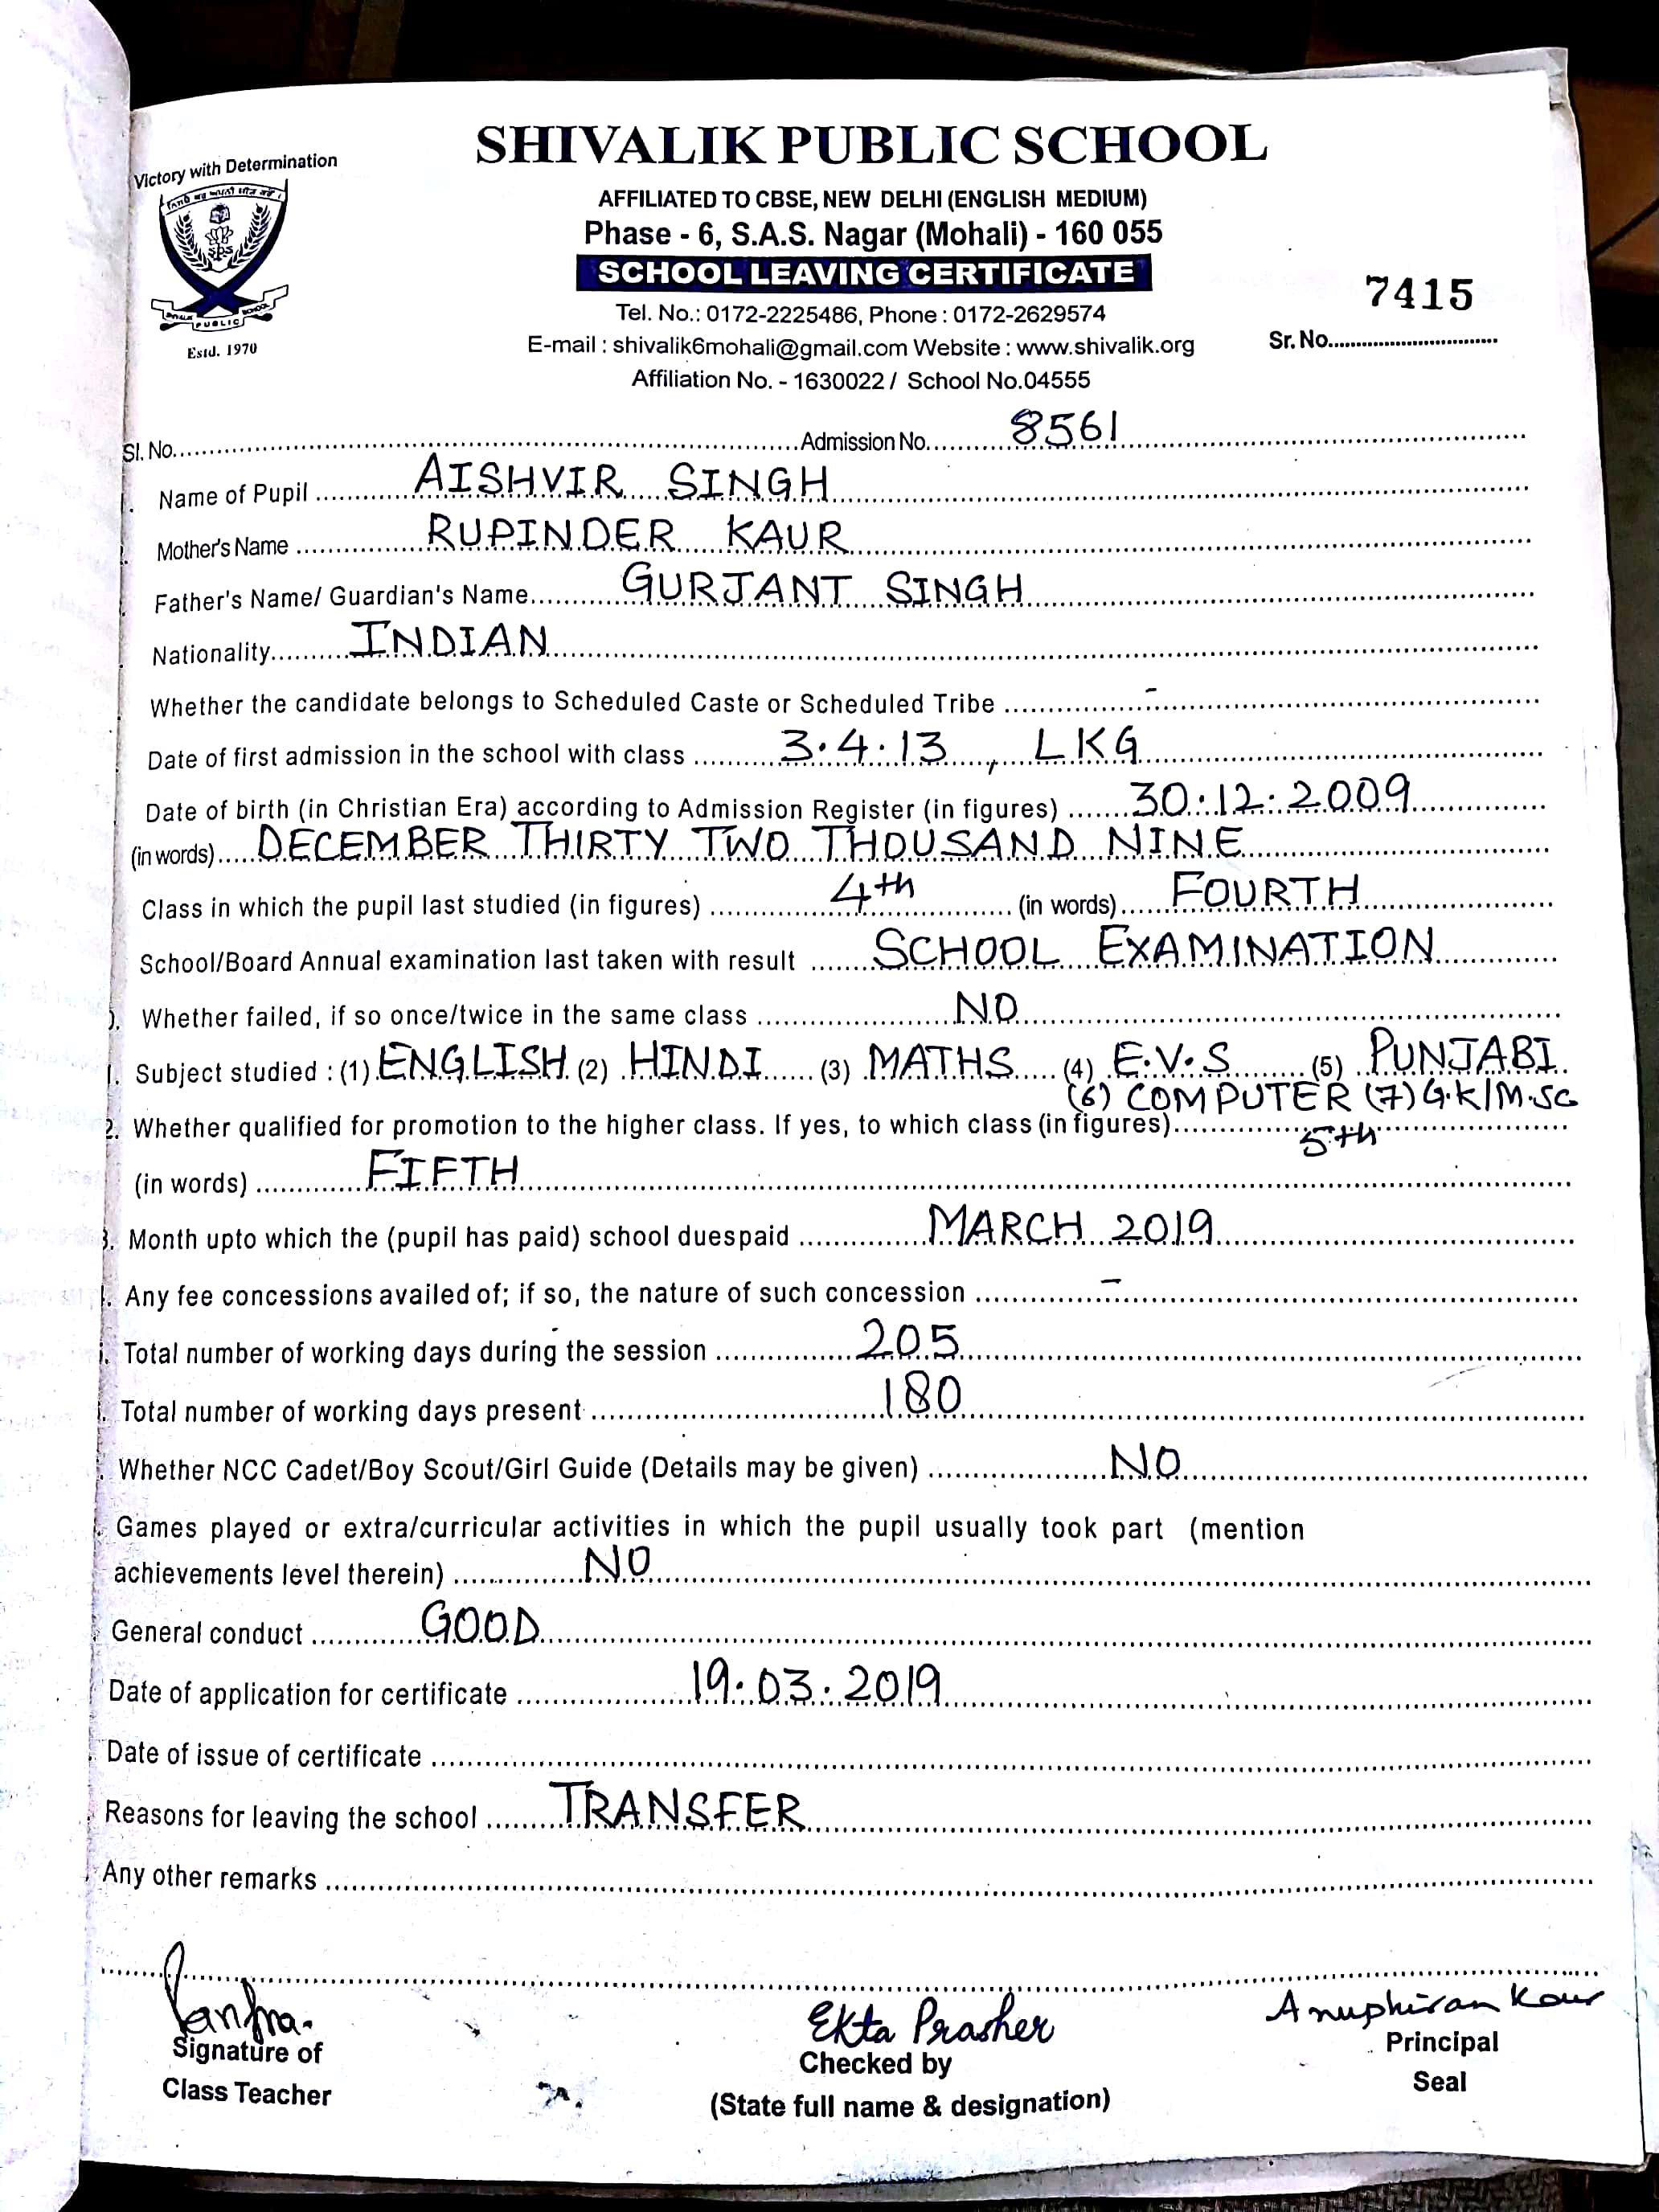 Victory with Determination
SHIVALIK PUBLIC SCHOOL
AFFILIATED TO CBSE, NEW DELHI (ENGLISH MEDIUM)
Phase - 6, S.A.S. Nagar (Mohali) - 160 055
SCHOOL LEAVING CERTIFICATE
7415
Tel. No.: 0172-2225486, Phone : 0172-2629574
SPS
PUBLIC SCHOOL
Estd. 1970
E-mail : shivalik6mohali@gmail.com Website : www.shivalik.org
Sr. No.
Affiliation No. - 1630022 / School No.04555
Sl. No. Admission No. 8561
Name of Pupil AISHVIR SINGH
Mother's Name RUPINDER KAUR
Father's Name/ Guardian's Name GURJANT SINGH
Nationality INDIAN
Whether the candidate belongs to Scheduled Caste or Scheduled Tribe -
Date of first admission in the school with class 3.4.13, LKG
Date of birth (in Christian Era) according to Admission Register (in figures) 30:12:2009
(in words) DECEMBER THIRTY TWO THOUSAND NINE
Class in which the pupil last studied (in figures) 4th (in words) FOURTH
School/Board Annual examination last taken with result SCHOOL EXAMINATION
Whether failed, if so once/twice in the same class NO
Subject studied : (1) ENGLISH (2) HINDI (3) MATHS (4) E.V.S (5) PUNJABI
(6) COMPUTER (7) G.K/M.SC
2. Whether qualified for promotion to the higher class. If yes, to which class (in figures) 5th
(in words) FIFTH
3. Month upto which the (pupil has paid) school duespaid MARCH 2019
Any fee concessions availed of; if so, the nature of such concession -
Total number of working days during the session 205
Total number of working days present 180
Whether NCC Cadet/Boy Scout/Girl Guide (Details may be given) NO
Games played or extra/curricular activities in which the pupil usually took part (mention
achievements level therein) NO
General conduct GOOD
Date of application for certificate 19.03.2019
Date of issue of certificate
Reasons for leaving the school TRANSFER
Any other remarks
Ekta Prasher
Anupkiran Kaur
Signature of
Class Teacher
Checked by
(State full name & designation)
Principal
Seal